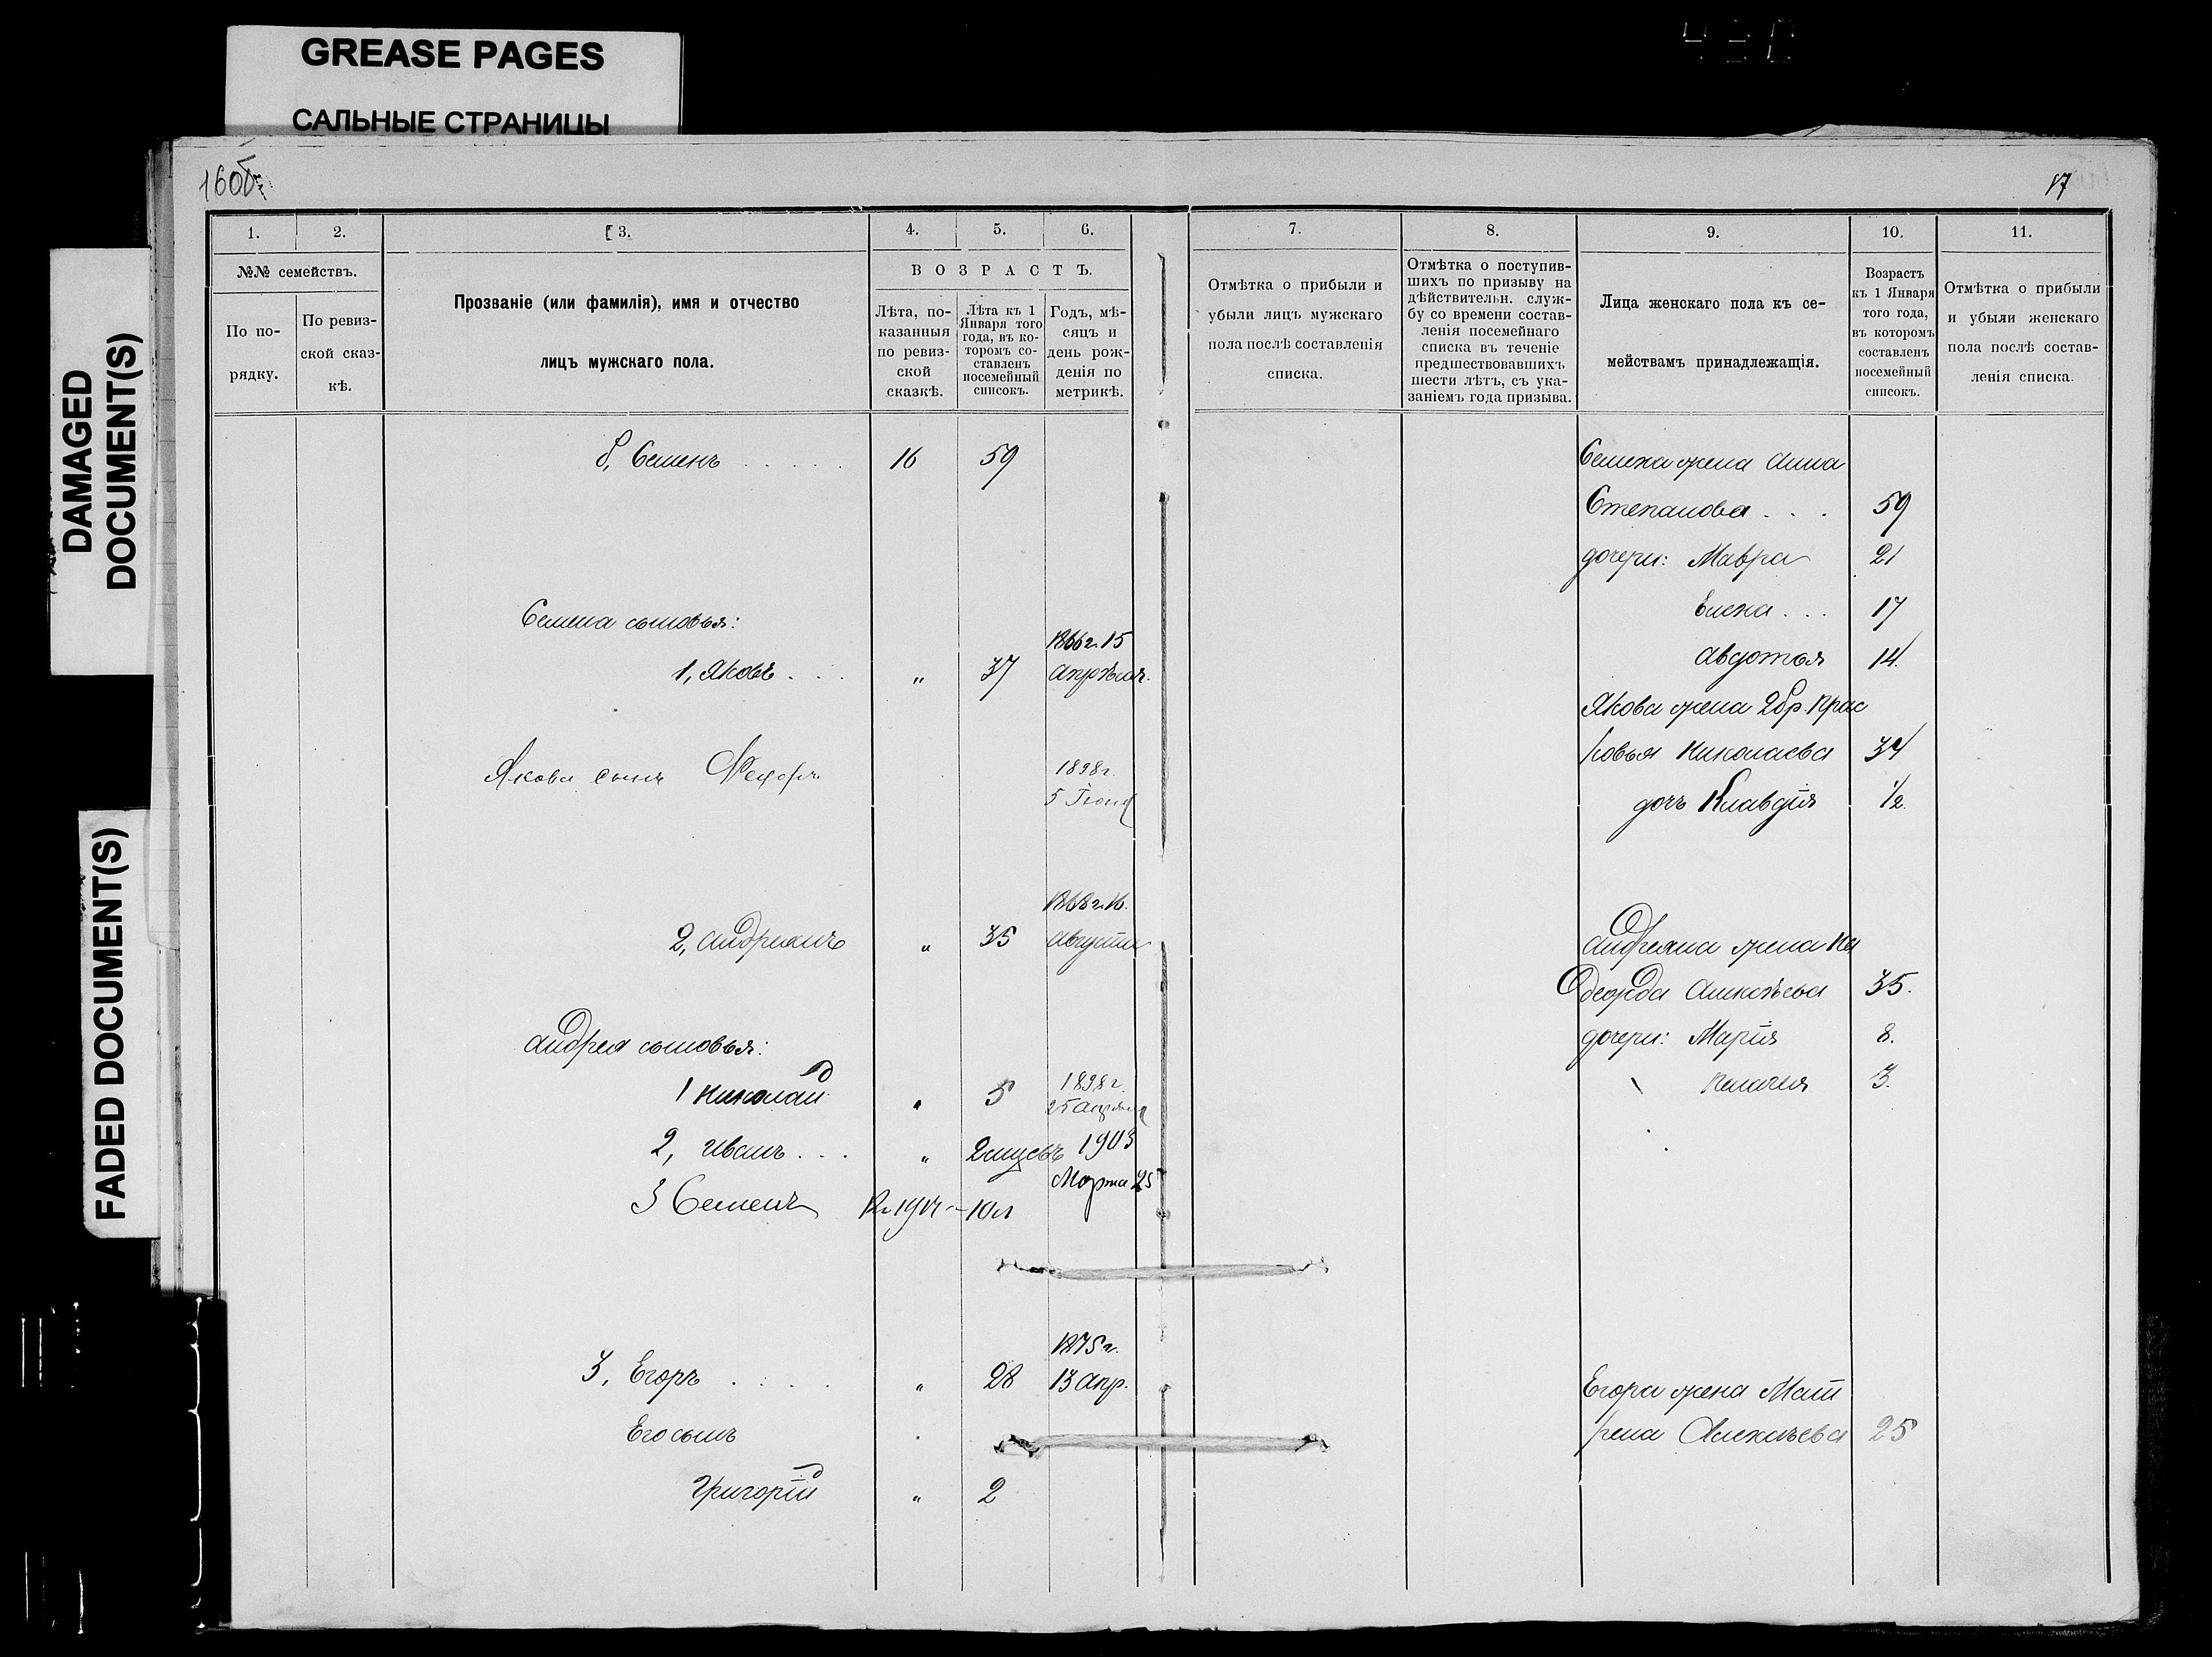 GREASE PAGES
САЛЬНЫЕ СТРАНИЦЫ
DAMAGED
DOCUMENT(S)
FADED DOCUMENT(S)
16об.
17
1. 2. 3. 4. 5. 6. 7. 8. 9. 10. 11.
№№ семействъ.
По по-
рядку.
По ревиз-
ской сказ-
кѣ.
Прозваніе (или фамилія), имя и отчество
лицъ мужскаго пола.
ВОЗРАСТЪ.
Лѣта, по-
казанныя
по ревиз-
ской
сказкѣ.
Лѣта къ 1
Января того
года, въ ко-
торомъ со-
ставленъ
посемейный
списокъ.
Годъ, мѣ-
сяцъ и
день рож-
денія по
метрикѣ.
Отмѣтка о прибыли и
убыли лицъ мужскаго
пола послѣ составленія
списка.
Отмѣтка о поступив-
шихъ по призыву на
дѣйствительн. служ-
бу со времени состав-
ленія посемейнаго
списка въ теченіе
предшествовавшихъ
шести лѣтъ, съ ука-
заніемъ года призыва.
Лица женскаго пола къ се-
мействамъ принадлежащія.
Возрастъ
къ 1 Января
того года,
въ которомъ
составленъ
посемейный
списокъ.
Отмѣтка о прибыли
и убыли женскаго
пола послѣ состав-
ленія списка.
Семенъ . . . . . 16 59
Семена жена Анна
Степанова . . . 59
дочери: Мавра 21
Елена . . . 17
Авдотья 14.
Семена сыновья:
1, Яковъ . . . „ 37 1866 г. 15
Апрѣля.
Якова жена 2 бр. Прас
ковья Николаева 34
дочь Клавдія 1/2.
Якова сынъ Федоръ 1898 г.
5 Іюня
2, Андреянъ „ 35 1868 г. 16.
Августа
Андреяна жена На
дежда Алексѣева 35.
дочери: Марія 8.
Пелагія 3.
Андрея сыновья:
1 Николай „ 5 1898 г.
25 Апрѣля
2, Иванъ . . . „ 2 мѣсъ 1903
Марта 25
3 Семенъ
3, Егоръ . . . . „ 28 1875 г.
13 Апр.
Егора жена Мат
рена Алексѣева 25
Его сынъ
Григорій „ 2